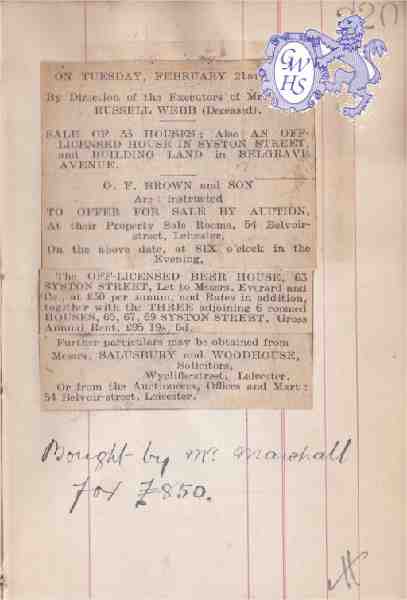 220
GWHS
ON TUESDAY, FEBRUARY 21st
By Direction of the Executors of Mr.
RUSSELL WEBB (Deceased).
SALE OF 35 HOUSES; Also AN OFF-
LICENSED HOUSE IN SYSTON STREET,
and BUILDING LAND in BELGRAVE
AVENUE.
G. F. BROWN and SON
Are instructed
TO OFFER FOR SALE BY AUCTION,
At their Property Sale Rooms, 54 Belvoir-
street, Leicester,
On the above date, at SIX o'clock in the
Evening,
The OFF-LICENSED BEER HOUSE, 63
SYSTON STREET, Let to Messrs. Everard and
Co., at £50 per annum, and Rates in addition,
together with the THREE adjoining 6 roomed
HOUSES, 65, 67, 69 SYSTON STREET. Gross
Annual Rent, £95 19s. 6d.
Further particulars may be obtained from
Messrs. SALUSBURY and WOODHOUSE,
Solicitors,
Wycliffe-street, Leicester.
Or from the Auctioneers, Offices and Mart:
54 Belvoir-street, Leicester.
Bought by Mr. Marshall
for £850.